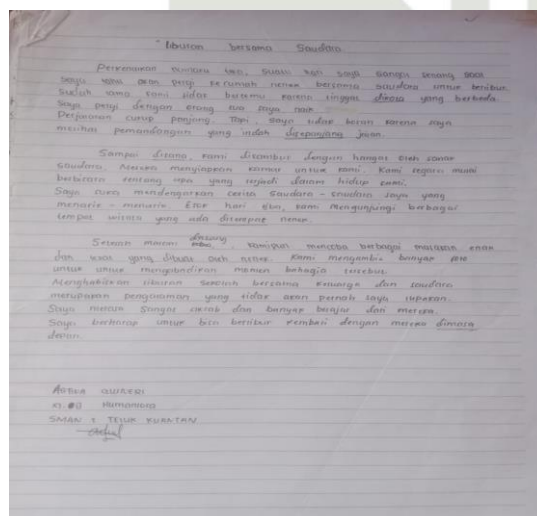 "liburan bersama Saudara
Perkenankan nama saya, suatu hari saya sangat senang saat
saya kami akan pergi kerumah nenek bersama saudara untuk berlibur.
Sudah lama kami tidak bertemu karena tinggal didesa yang berbeda.
Saya pergi dengan orang tua saya naik
Perjalanan cukup panjang. Tapi, saya tidak bosan karena saya
melihat pemandangan yang indah disepanjang jalan.
Sampai disana, kami disambut dengan hangat oleh sanak
saudara. Mereka menyiapkan kamar untuk kami. Kami segera mulai
berbicara tentang apa yang terjadi dalam hidup kami.
Saya suka mendengarkan cerita saudara - saudara saya yang
menarik - menarik. Esok hari nya, kami mengunjungi berbagai
tempat wisata yang ada ditempat nenek.
Setelah malam datang, kamipun mencoba berbagai masakan enak
dan lezat yang dibuat oleh nenek. Kami mengambil banyak foto
untuk untuk mengabadikan momen bahagia tersebut.
Menghabiskan liburan sekolah bersama keluarga dan saudara
merupakan pengalaman yang tidak akan pernah saya lupakan.
Saya merasa sangat akrab dan banyak belajar dari mereka.
Saya berharap untuk bisa berlibur kembali dengan mereka dimasa
depan.
XI. Humaniora
SMAN 1 TELUK KUANTAN